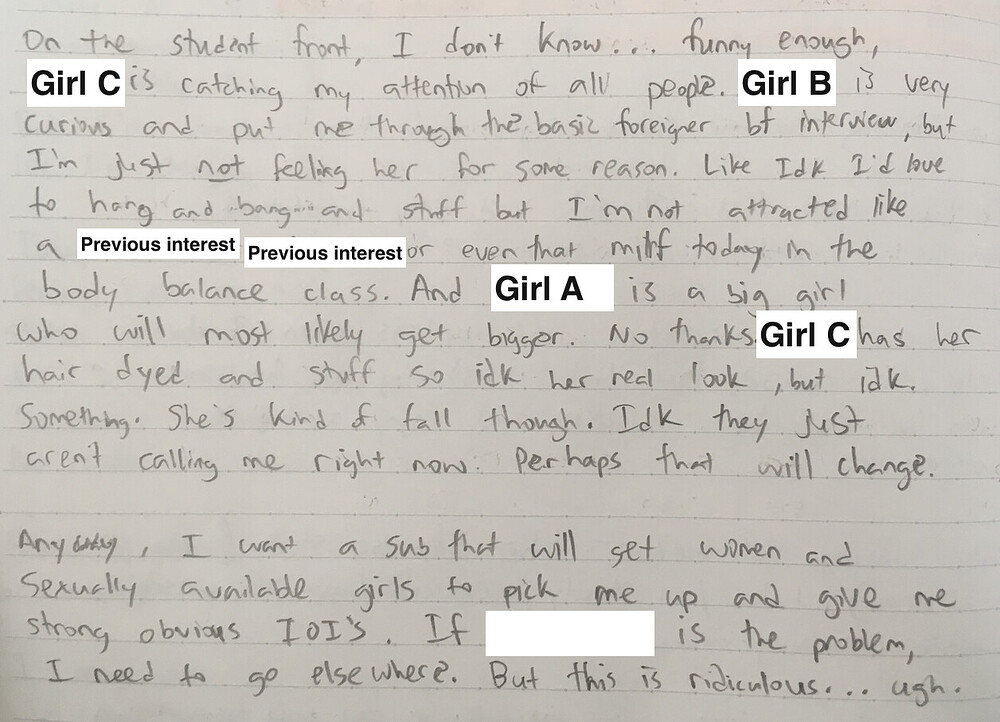 On the student front, I don't know... funny enough,
Girl C is catching my attention of all people. Girl B is very
curious and put me through the basic foreigner bf interview, but
I'm just not feeling her for some reason. Like Idk I'd love
to hang and bang... and stuff but I'm not attracted like
a Previous interest Previous interest or even that milf today in the
body balance class. And Girl A is a big girl
who will most likely get bigger. No thanks. Girl C has her
hair dyed and stuff so idk her real look, but idk.
Something. She's kind of tall though. Idk they just
aren't calling me right now. Perhaps that will change.
Any, I want a sub that will get women and
sexually available girls to pick me up and give me
strong obvious IOI's. If is the problem,
I need to go elsewhere. But this is ridiculous... ugh.